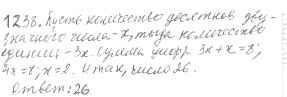 1238. Пусть количество десятков дву-
значного числа - x, тогда количество
единиц - 3x. Сумма цифр 3x + x = 8;
4x = 8; x = 2. Итак, число 26.
Ответ: 26